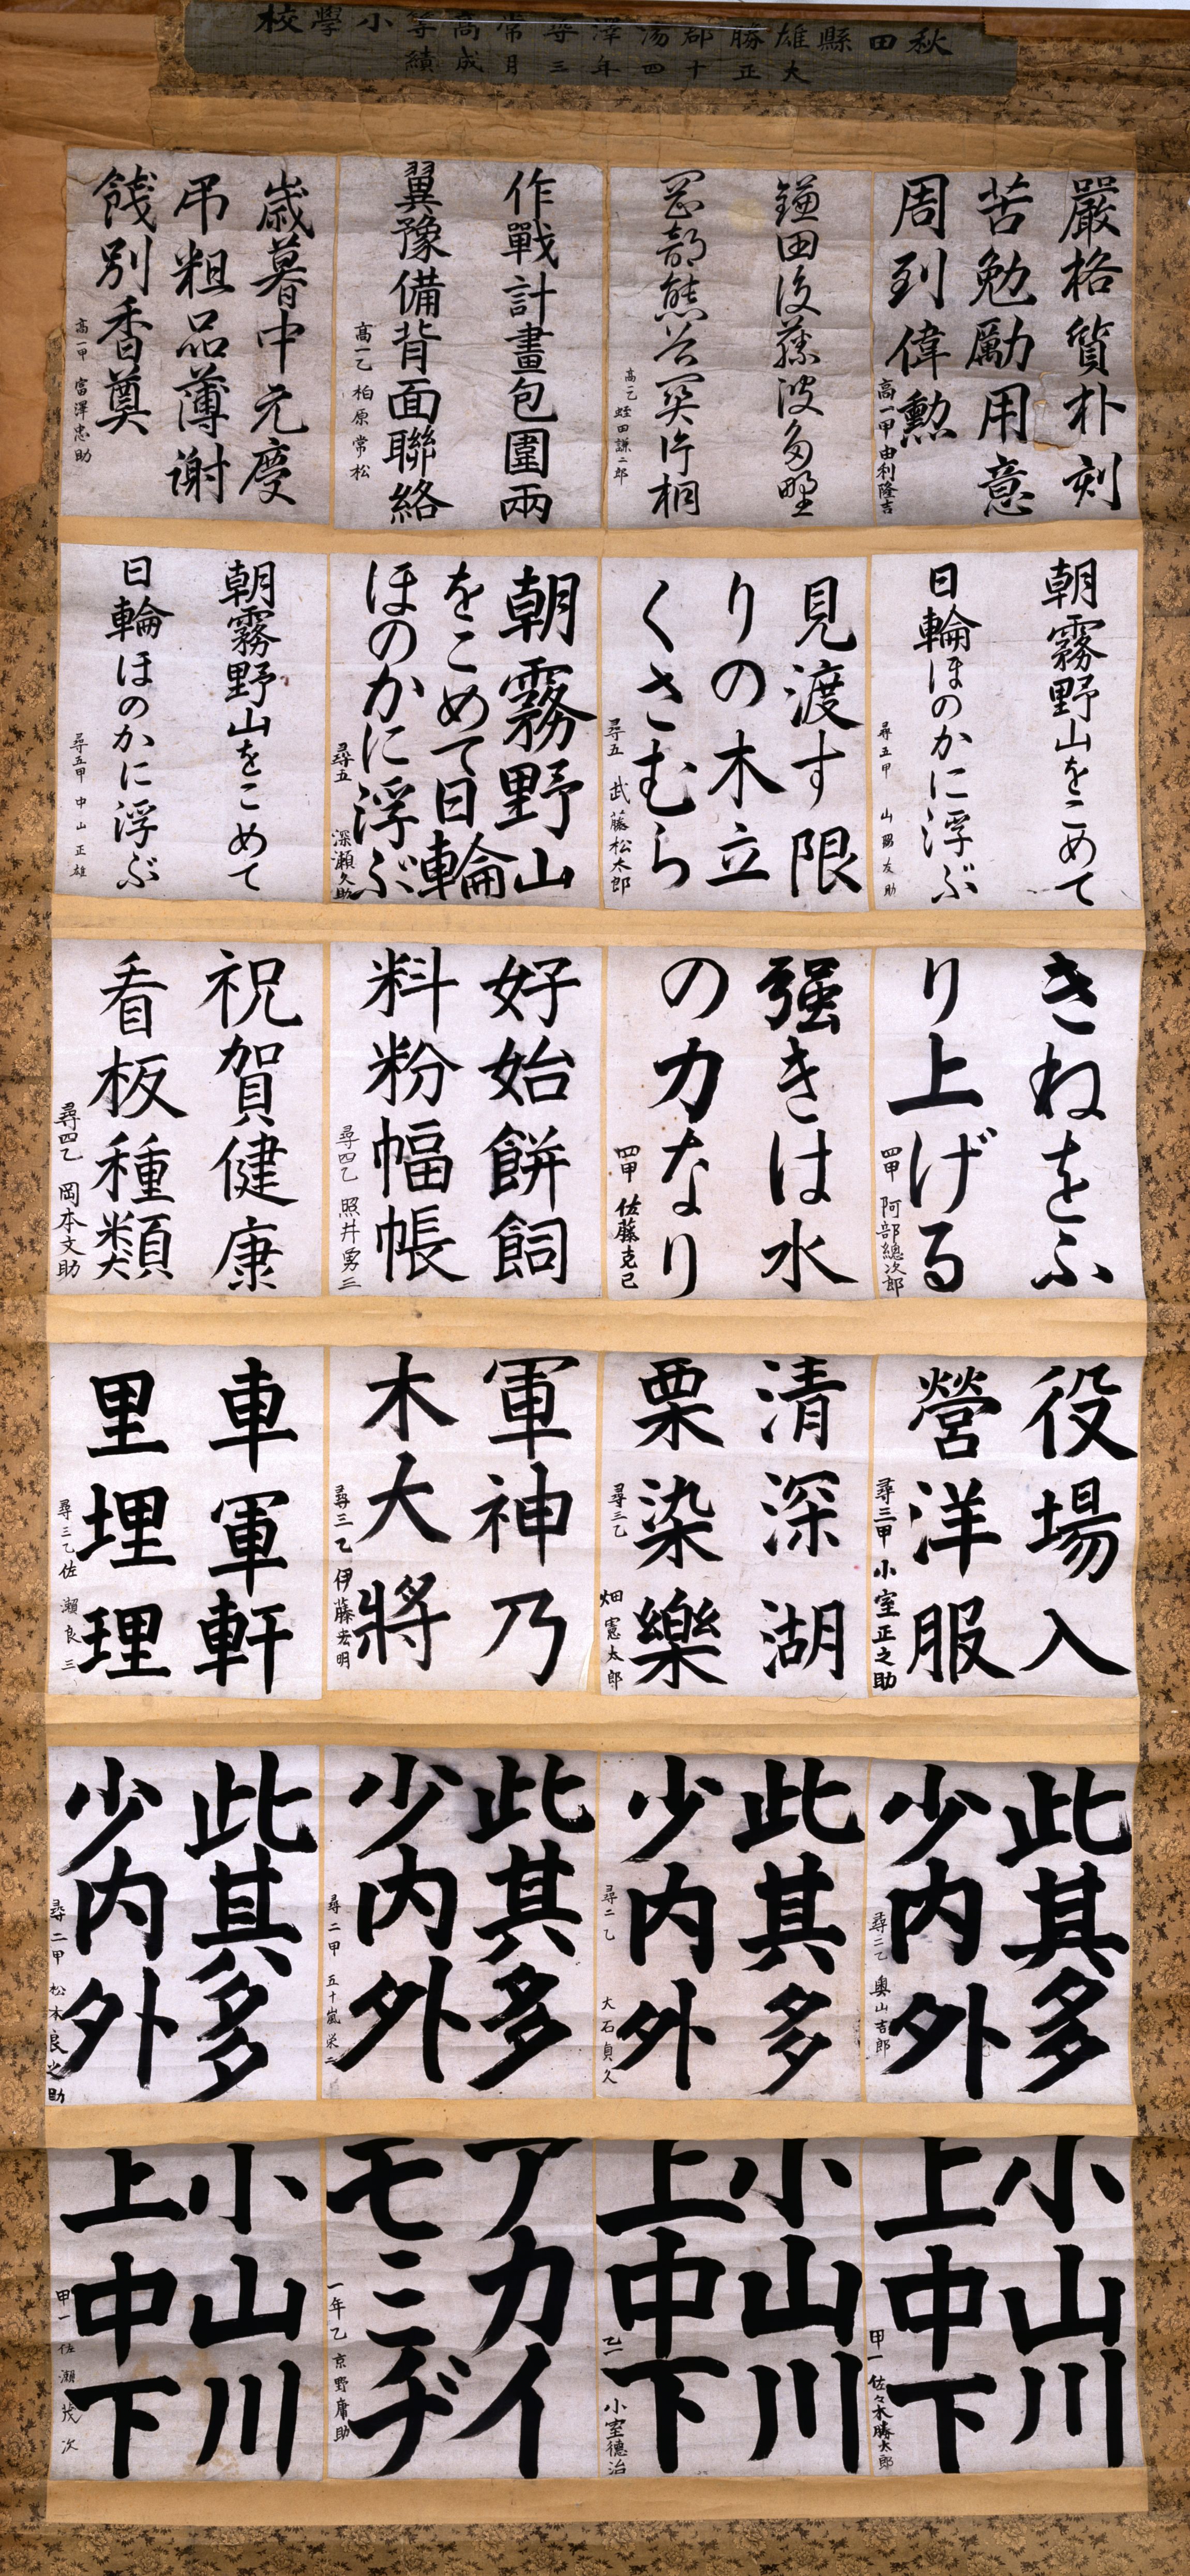 秋田縣雄勝郡湯澤尋常高等小學校
大正十四年三月成績
嚴格質朴刻
苦勉勵用意
周到偉勲
高一甲由利隆吉
鎌田後藤波多野
岡部熊谷関片桐
高一乙 蛭田謙二郎
作戰計畫包圍兩
翼豫備背面聯絡
高一乙 柏原常松
歳暮中元慶
弔粗品薄谢
餞別香奠
高一甲 富澤忠助
朝霧野山をこめて
日輪ほのかに浮ぶ
尋五甲 山 友助
見渡す限
りの木立
くさむら
尋五 武藤松太郎
朝霧野山
をこめて日輪
ほのかに浮ぶ
尋五 深瀬久助
朝霧野山をこめて
日輪ほのかに浮ぶ
尋五甲 中山正雄
きねをふ
り上げる
四甲 阿部總次郎
强きは水
の力なり
四甲 佐藤克已
好始餅飼
料粉幅帳
尋四乙 照井勇三
祝賀健康
看板種類
尋四乙 岡本文助
役場入
營洋服
尋三甲 小室正之助
清深湖
栗染樂
尋三乙 畑憲太郎
軍神乃
木大將
尋三乙 伊藤宏明
車軍軒
里埋理
尋三乙佐瀬良三
此其多
少内外
尋二乙 奥山吉郎
此其多
少内外
尋二乙 大石貞久
此其多
少内外
尋二甲 五十嵐栄二
此其多
少内外
尋二甲 松本良之助
小山川
上中下
甲一 佐々木勝太郎
小山川
上中下
乙一 小室德治
アカイ
モミヂ
一年乙 京野庸助
小山川
上中下
甲一 佐瀬茂次